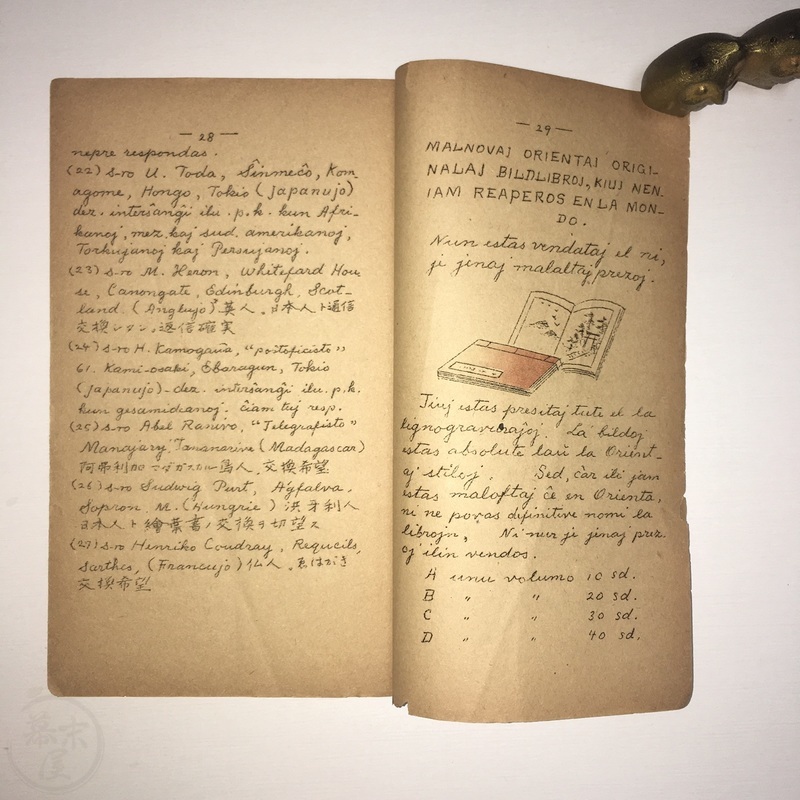 — 28 —
nepre respondas.
(22) s-ro U. Toda, Ŝinmeĉo, Kom
agome, Hongo, Tokio (japanujo)
dez. interŝanĝi ilu. p.k. kun Afri-
kanoj, mez. kaj sud. amerikanoj,
Torkujanoj kaj Persujanoj.
(23) s-ro M. Heron, Whitefard Hou
se, Canongate, Edinburgh, Scot-
land. (Anglujo) 英人。日本人ト通信
交換シタシ。返信確実
(24) s-ro H. Kamogaŭa, "postoficisto"
61. Kami-osaki, Ebaragun, Tokio
(japanujo) - dez. interŝanĝi ilu. p.k.
kun gesamideanoj. ĉiam tuj resp.
(25) s-ro Abel Ranivo, "Telegrafisto"
Manajary, Tananarive (Madagascar)
阿弗利加 マダガスカル島人。交換希望
(26) s-ro Ludwig Purt, Agfalva,
Sopron. M. (Hungrie) 洪牙利人
日本人ト繪葉書ノ交換ヲ切望ス
(27) s-ro Henriko Coudray, Requeils,
Sarthes, (Francujo) 仏人。ゑはがき
交換希望
— 29 —
MALNOVAJ ORIENTAJ ORIGI-
NALAJ BILDLIBROJ, KIUJ NEN-
IAM REAPEROS EN LA MON-
DO.
Nun estas vendataj el ni,
ji jenaj malaltaj prezoj.
Tiuj estas presitaj tute el la
lignogravuraĵoj. La bildoj
estas absolute laŭ la Orient-
aj stiloj. Sed, ĉar ili jam
estas maloftaj ĉe en Orienta,
ni ne povas difinitive nomi la
librojn, Ni nur ji jenaj prez-
oj ilin vendos.
A unu volumo 10 sd.
B 〃 〃 20 sd.
C 〃 〃 30 sd.
D 〃 〃 40 sd.
幕末屋